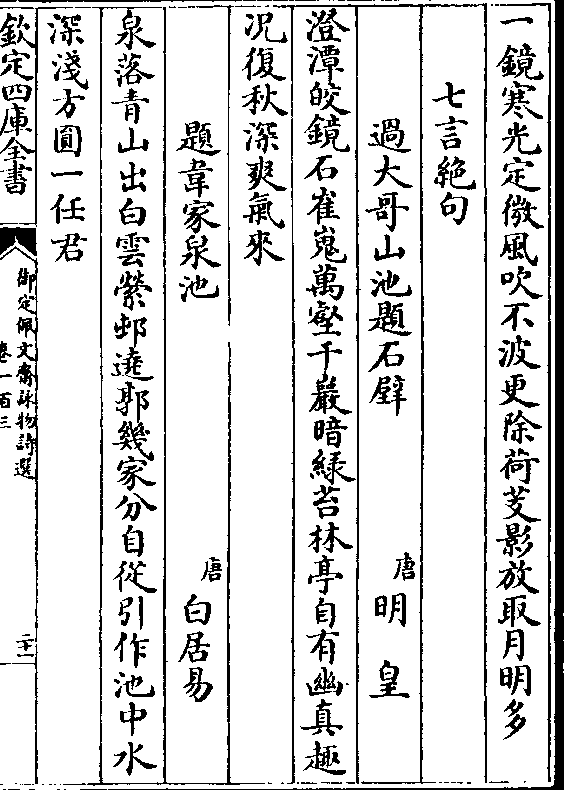 一鏡寒光定微風吹不波更除荷芰影放取月明多
七言絶句
過大哥山池題石壁 唐 明皇
澄潭皎鏡石崔嵬萬壑千巖暗綠苔林亭自有幽真趣
况復秋深爽氣來
題韋家泉池 唐 白居易
泉落青山出白雲縈邨遶郭幾家分自從引作池中水
深淺方圓一任君
欽定四庫全書
御定佩文齋詠物詩選
卷一百三
二十一